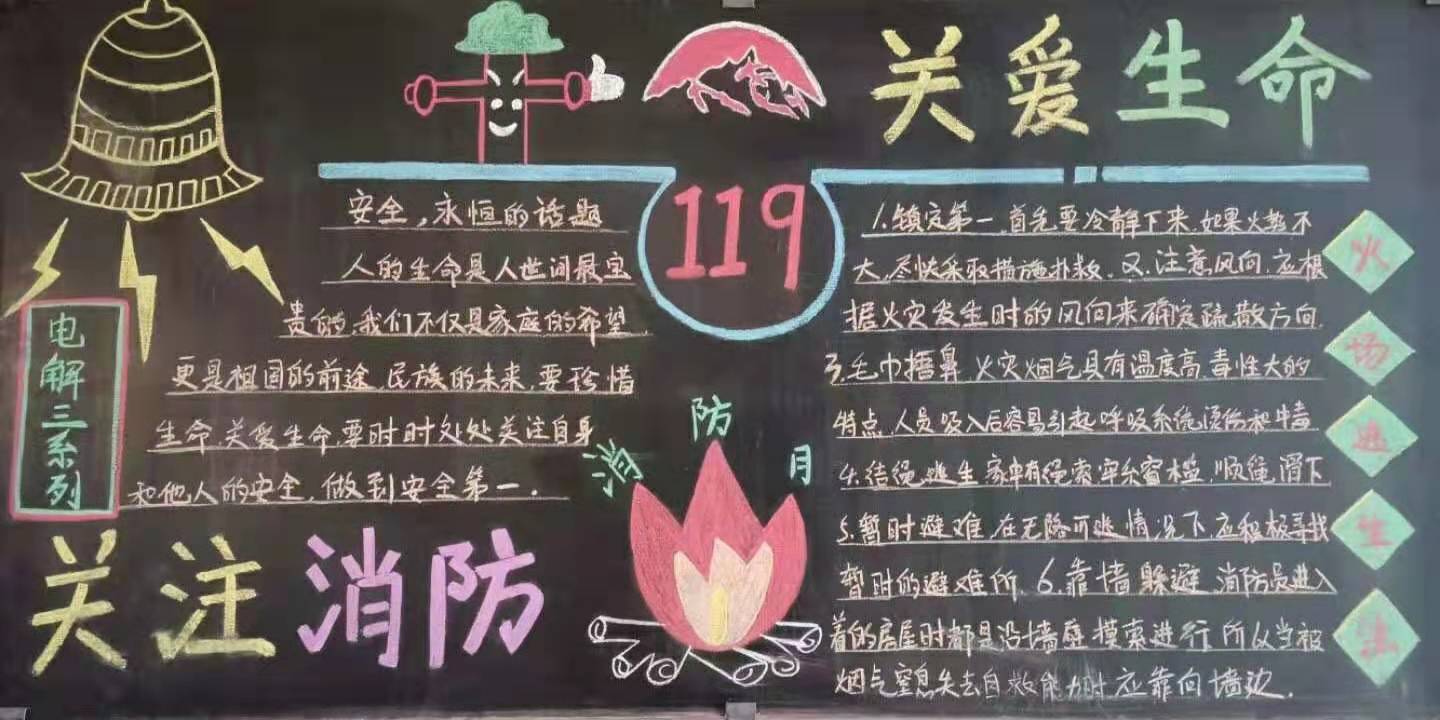 关爱生命
119
安全，永恒的话题
人的生命是人世间最宝
贵的，我们不仅是家庭的希望，
更是祖国的前途、民族的未来，要珍惜
生命，关爱生命，要时时处处关注自身
和他人的安全，做到安全第一．
电解三系列
关注消防
消防月
1.镇定第一，首先要冷静下来，如果火势不
大，尽快采取措施扑救，2.注意风向，应根
据火灾发生时的风向来确定疏散方向，
3.毛巾捂鼻，火灾烟气具有温度高，毒性大的
特点，人员吸入后容易引起呼吸系统烫伤和中毒
4.结绳逃生，家中有绳索，牢系窗槛，顺绳滑下
5.暂时避难，在无路可逃情况下，应积极寻找
暂时的避难所，6.靠墙躲避，消防员进入
着的房屋时都是沿墙壁摸索进行，所以当被
烟气窒息失去自救能力时，应靠向墙边．
火场逃生法